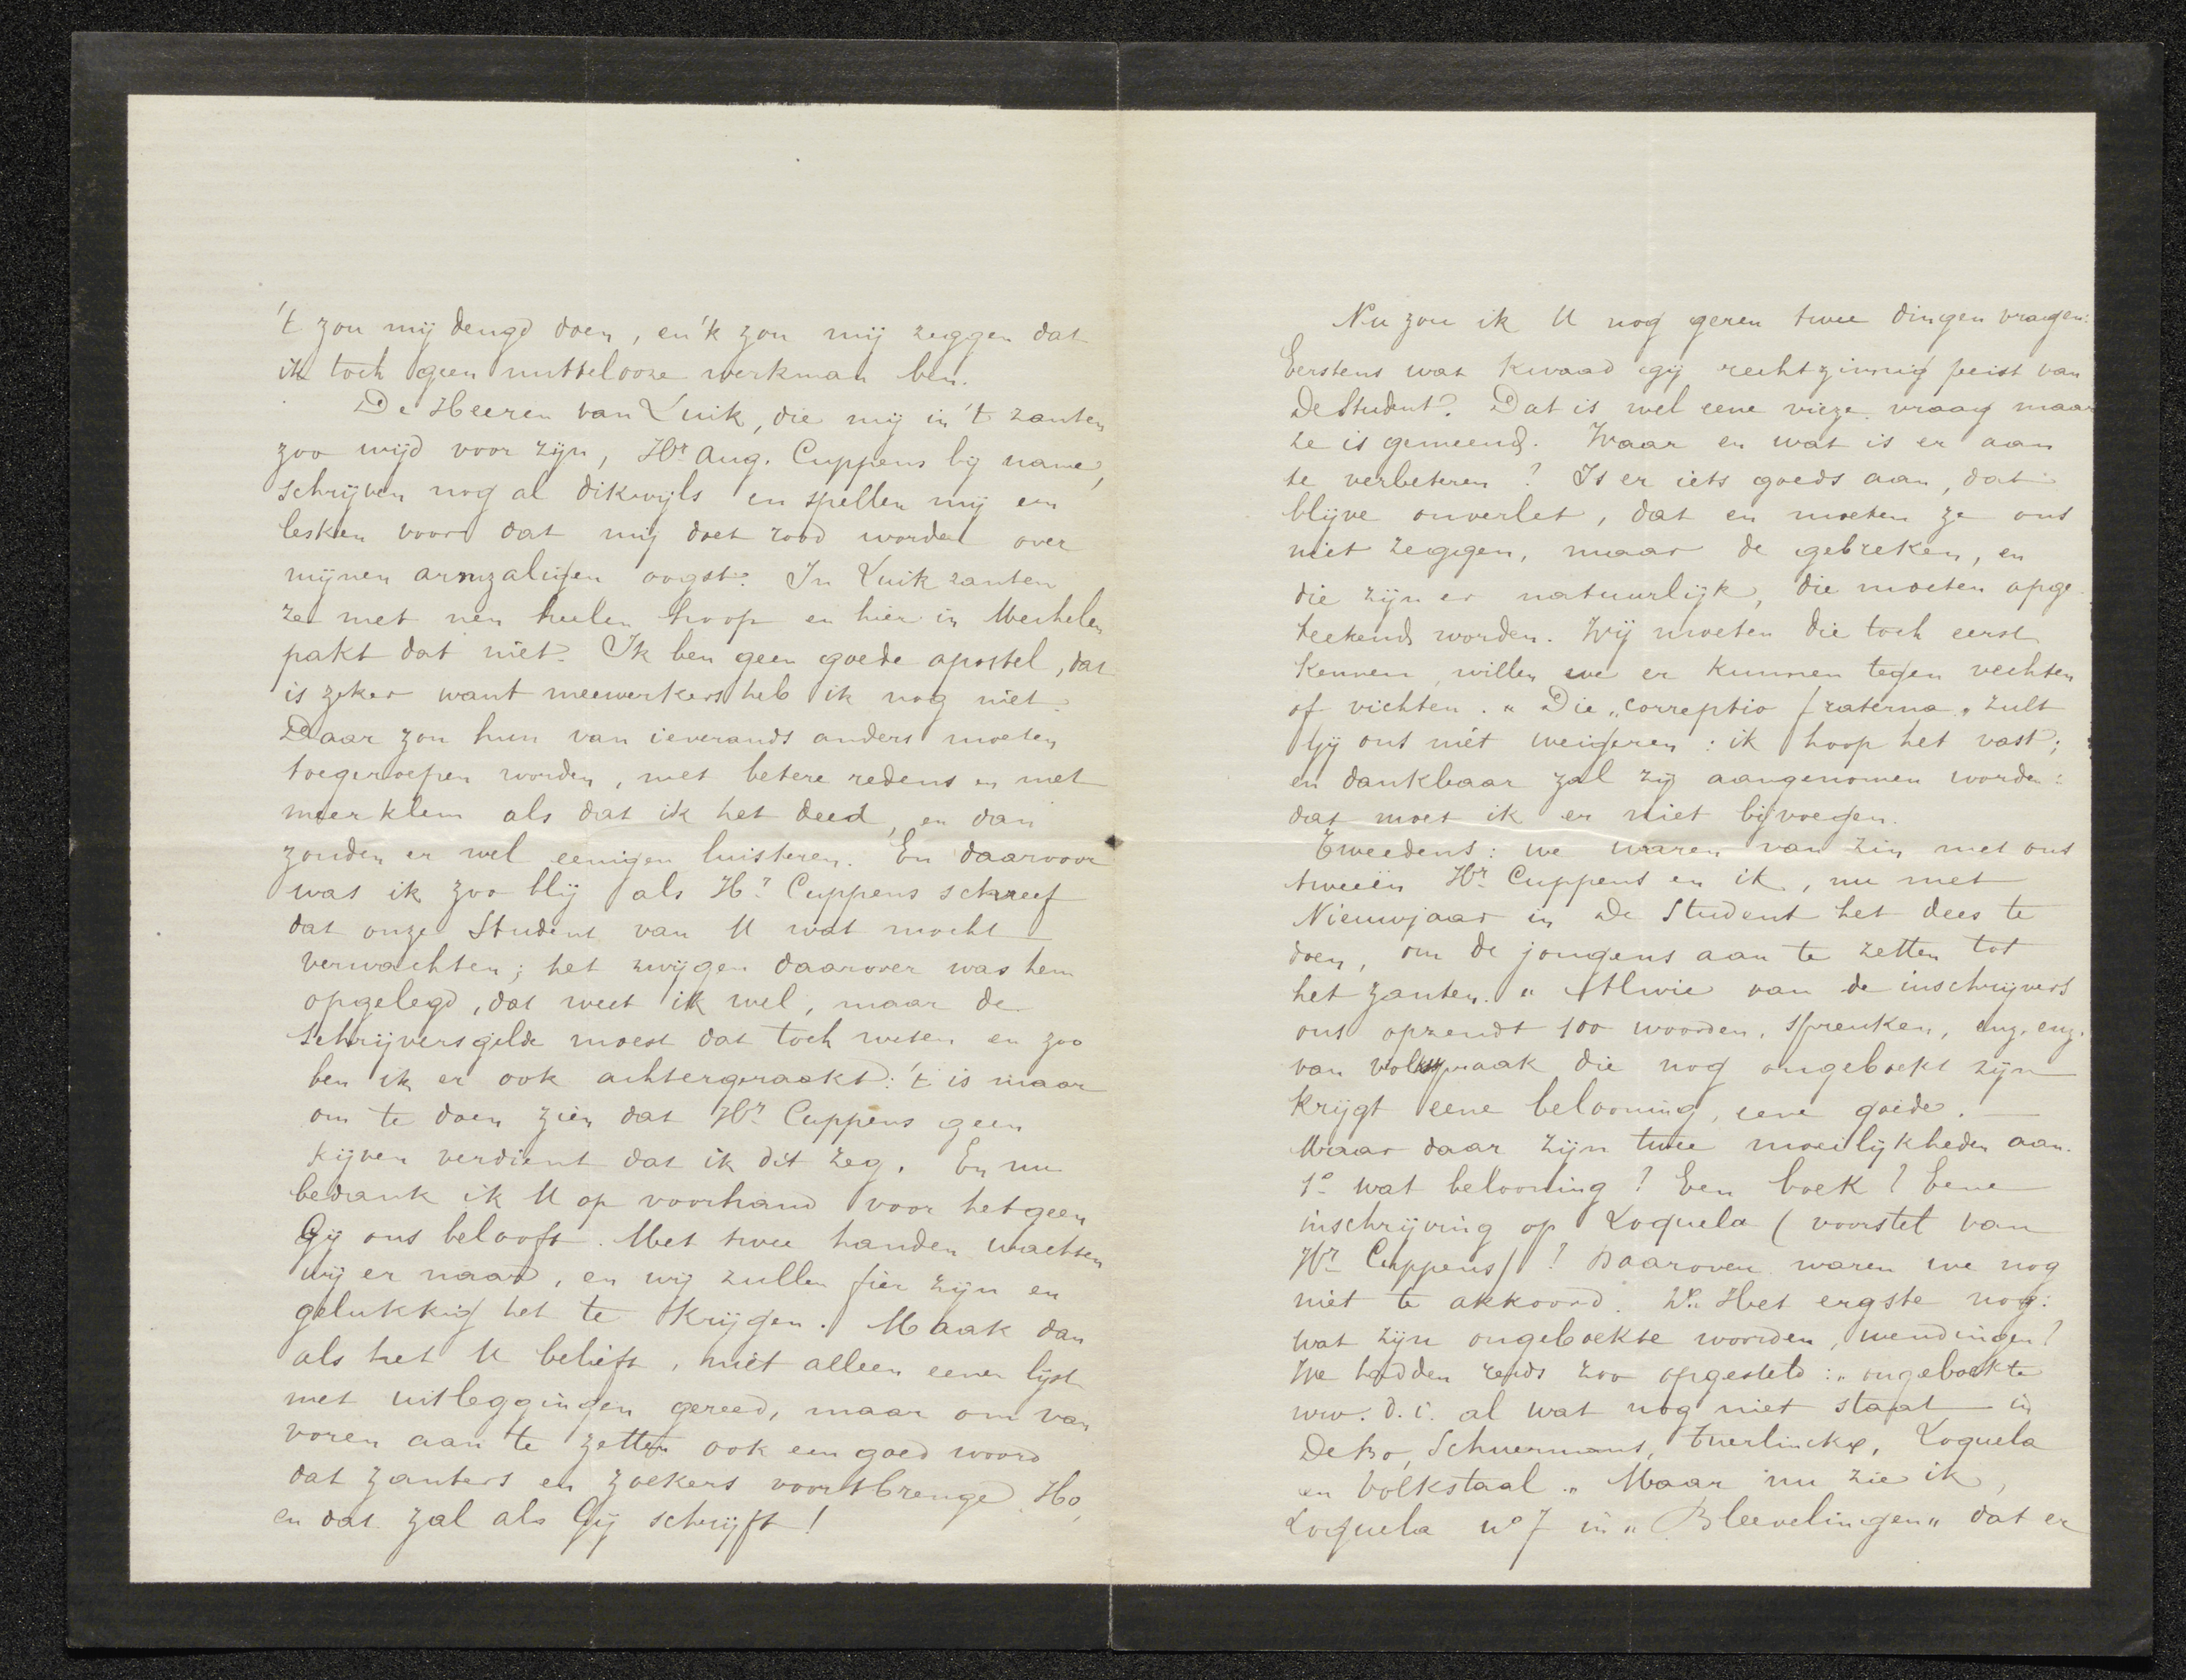 't zou mij deugd doen, en 'k zou mij zeggen dat
ik toch geen nuttelooze werkman ben.
De Heeren van Luik, die mij in 't zanten
zoo wijd voor zijn, Hr. Aug. Cuppens bij name,
schrijven nog al dikwijls en spellen mij een
lesken voor dat mij doet rood worden over
mijnen armzaligen oogst. In Luik zanten
ze met nen heelen hoop en hier in Mechelen
pakt dat niet. Ik ben geen goede apostel, dat
is zeker want meewerkers heb ik nog niet.
Daar zou hun van ieverands anders moeten
toegeroepen worden, met betere redens en met
meer klem als dat ik het deed, en dan
zouden er wel eenigen luisteren. En daarvoor
was ik zoo blij als Hr. Cuppens schreef
dat onze Student van U wat mocht
verwachten; het zwijgen daarover was hem
opgelegd, dat weet ik wel, maar de
schrijversgilde moest dat toch weten en zoo
ben ik er ook achtergeraakt: 't is maar
om te doen zien dat Hr. Cuppens geen
kijven verdient dat ik dit zeg. En nu
bedank ik U op voorhand voor hetgeen
Gij ons belooft. Met twee handen wachten
wij er naar, en wij zullen fier zijn en
gelukkig het te krijgen. Maak dan
als het U belieft, niet alleen eenen lijst
met uitleggingen gereed, maar om van
voren aan te zetten ook een goed woord
dat zanters en zoekers voortbrenge. Ho,
en dat zal als Gij schrijft!
Nu zou ik U nog geren twee dingen vragen:
Eerstens wat kwaad gij rechtzinnig peist van
De Student? Dat is wel eene vieze vraag maar
ze is gemeend. Waar en wat is er aan
te verbeteren? Is er iets goeds aan, dat
blijve onverlet, dat en moeten ze ons
niet zeggen, maar de gebreken, en
die zijn er natuurlijk, die moeten opge-
teekend worden. Wij moeten die toch eerst
kennen, willen we er kunnen tegen vechten
of vichten. „Die „correptio fraterna" zult
Gij ons niet weigeren: ik hoop het vast;
en dankbaar zal zij aangenomen worden:
dat moet ik er niet bijvoegen.
Tweedens: we waren van zin met ons
tweeën Hr. Cuppens en ik, nu met
Nieuwjaar in De Student het dees te
doen, om de jongens aan te zetten tot
het zanten. „Alwie van de inschrijvers
ons opzendt 100 woorden, spreuken, enz. enz.
van volksspraak die nog ongeboekt zijn
krijgt eene belooning, eene goede. —
Maar daar zijn twee moeilijkheden aan.
1o wat belooning? Een boek? Eene
inschrijving op Loquela (voorstel van
Hr. Cuppens)? Daarover waren we nog
niet te akkoord. 2o. Het ergste nog:
wat zijn ongeboekte woorden, wendingen?
We hadden reeds zoo opgesteld: „ongeboekte
wrv. d.i. al wat nog niet staat in
De Bo, Schuermans, Tuerlinckx, Loquela
en Volkstaal." Maar nu zie ik,
Loquela no 7 in „Bleevelingen" dat er